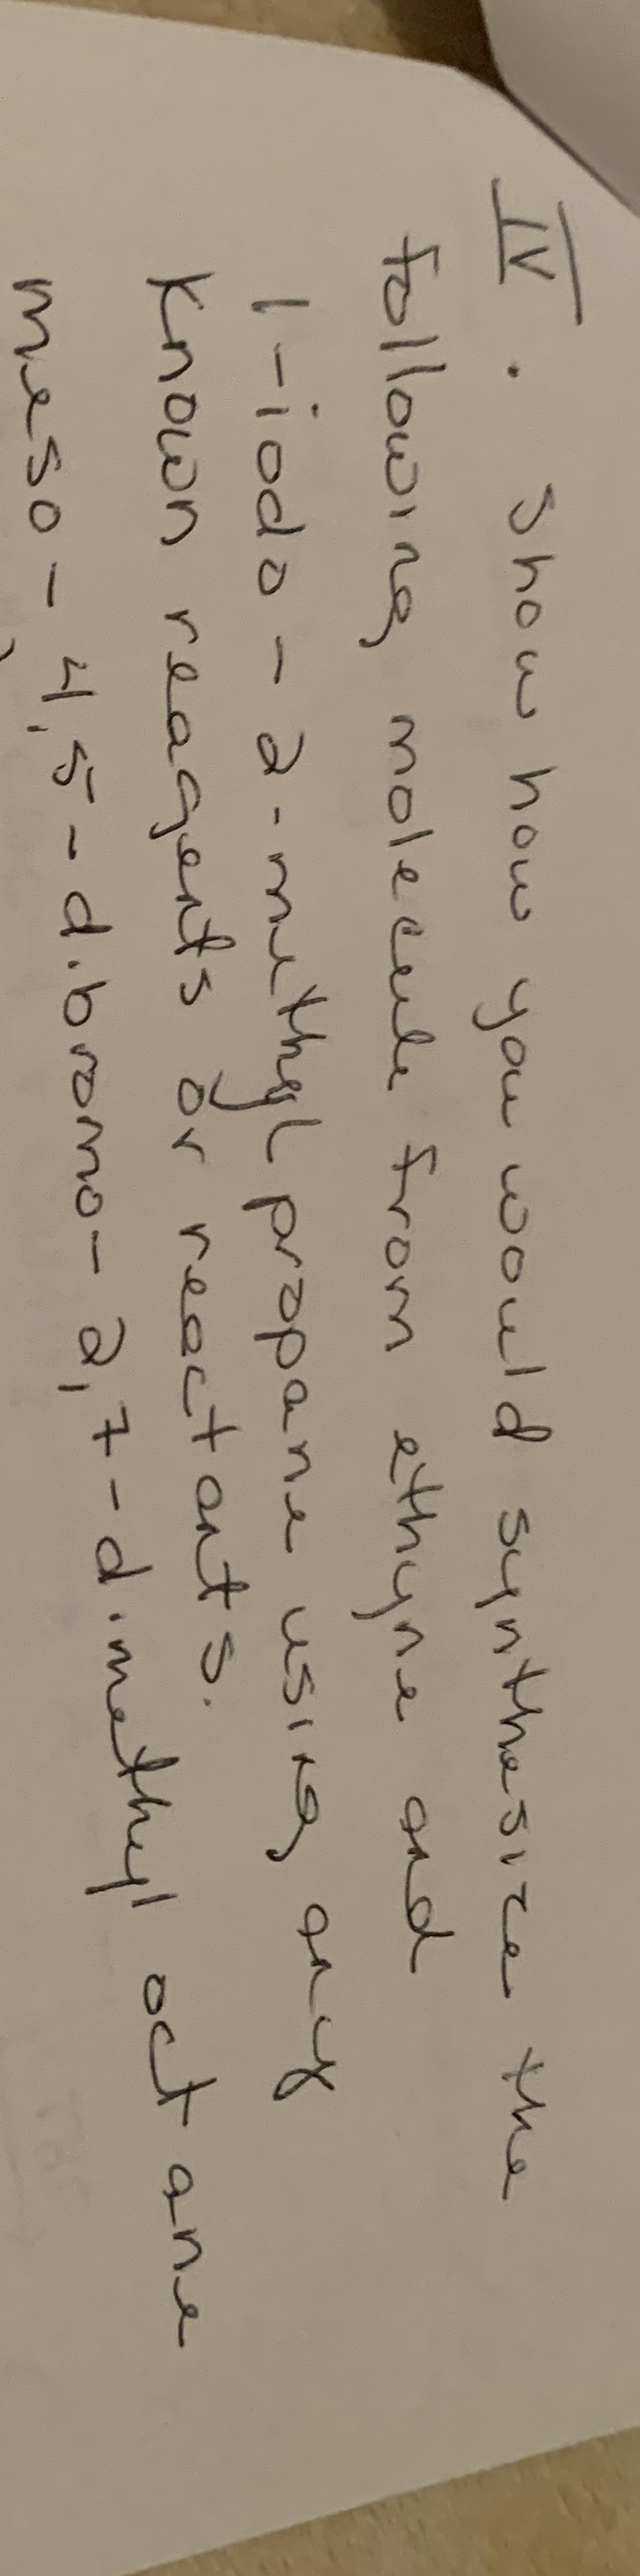 IV. Show how you would synthesize the
following molecule from ethyne and
1-iodo-2-methyl propane using any
known reagents or reactants.
meso-4,5-dibromo-2,7-dimethyl octane